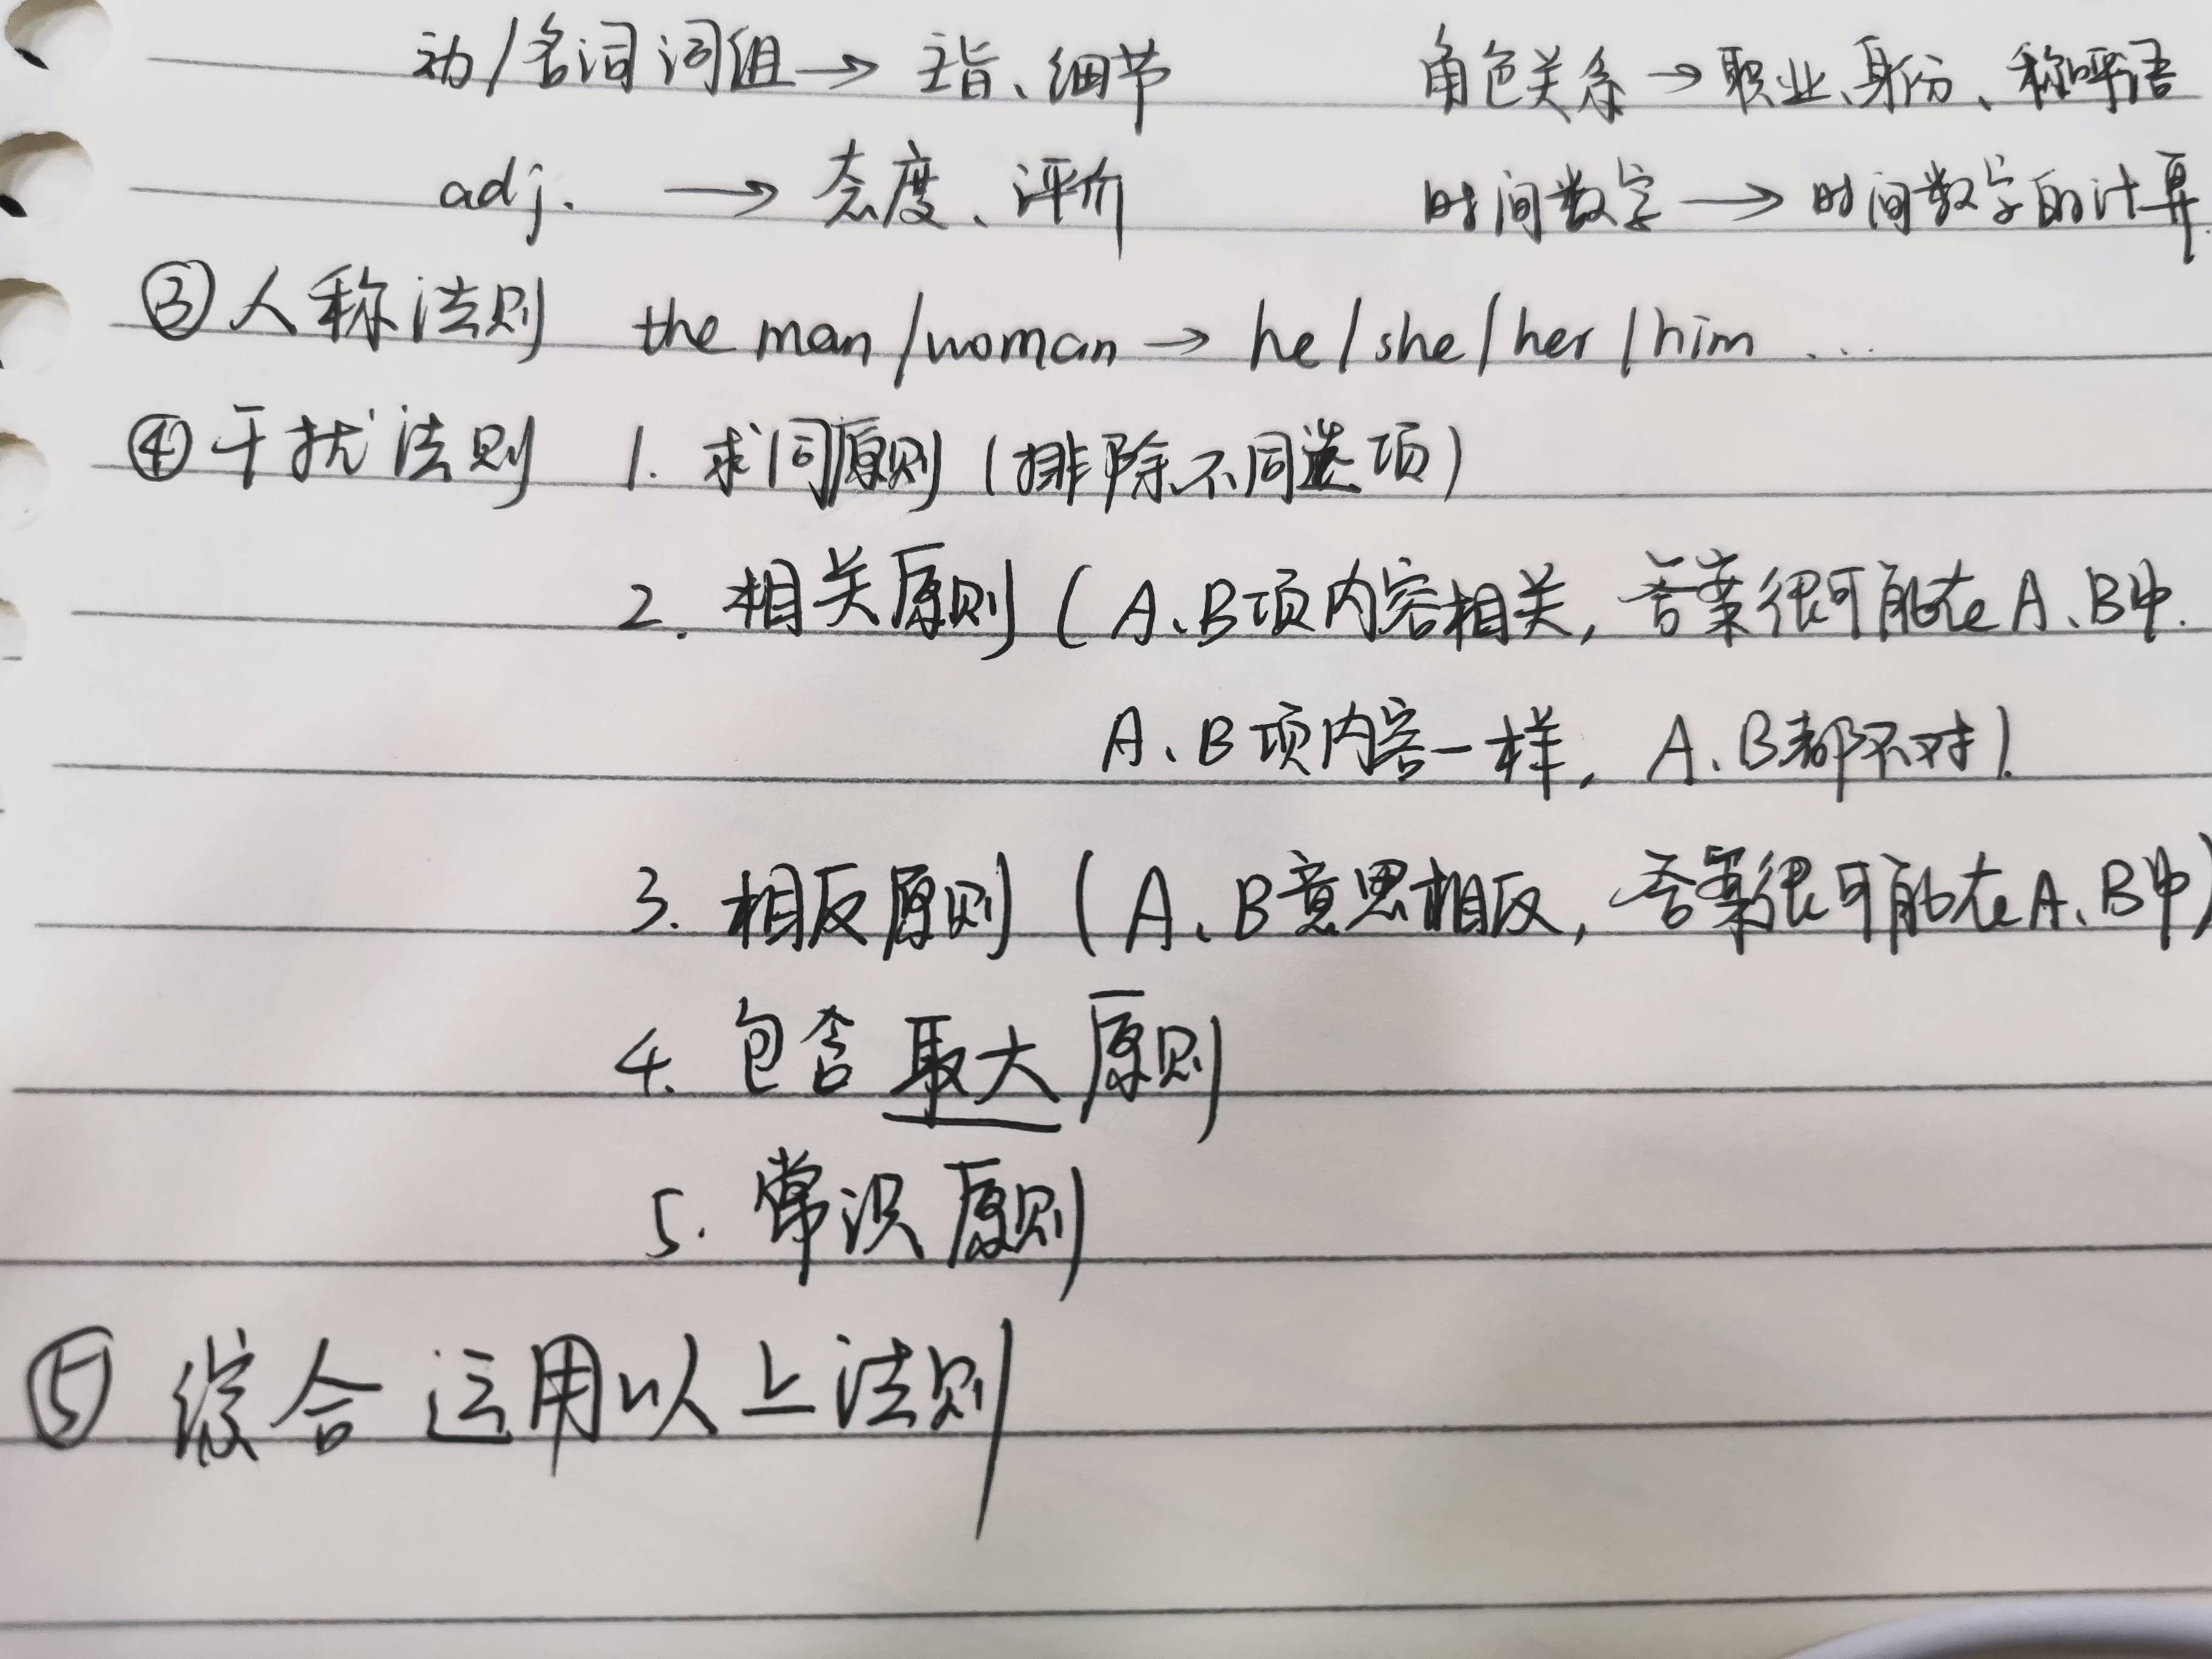 动/名词词组→主旨、细节 角色关系→职业、身份、称呼语
adj. →态度、评价 时间数字→时间数字的计算
③人称法则 the man/woman→he/she/her/him ...
④干扰法则 1. 求同原则(排除不同选项)
2. 相关原则(A、B项内容相关,答案很可能在A、B中.
A、B项内容一样,A、B都不对).
3. 相反原则(A、B意思相反,答案很可能在A、B中)
4. 包含最大原则
5. 常识原则
⑤综合运用以上法则